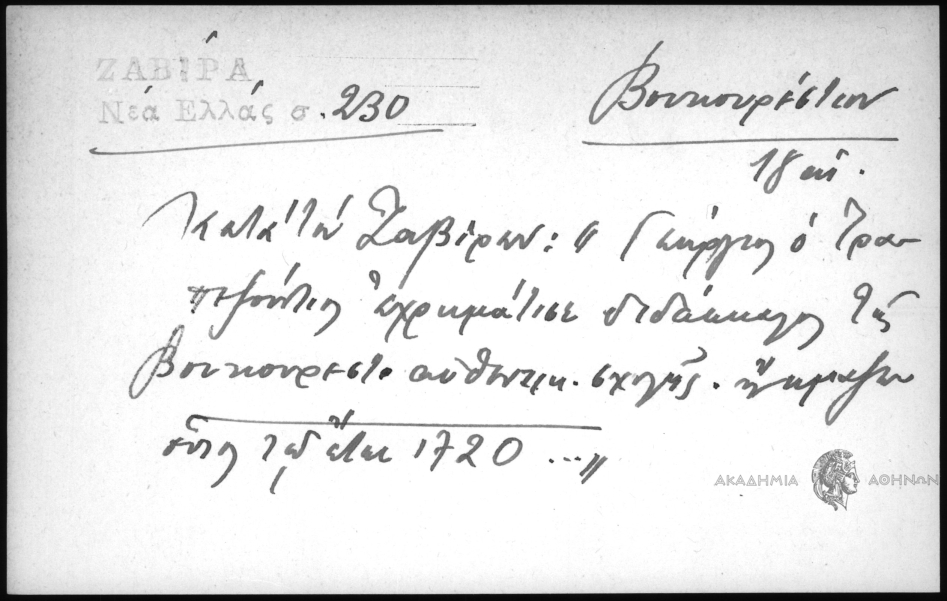 ΖΑΒΙΡΑ
Νέα Ελλάς σ. 230
Βουκουρέστιον
18 αἰ.
Κατὰ τὸν Ζαβίραν: "Γεώργιος ὁ Τρα-
πεζούντιος ἐχρημάτισε διδάσκαλος τῆς
Βουκουρεστ. αὐθεντικ. σχολῆς. ἤκμαζεν
οὗτος τῷ ἔτει 1720 ..."
ΑΚΑΔΗΜΙΑ ΑΘΗΝΩΝ